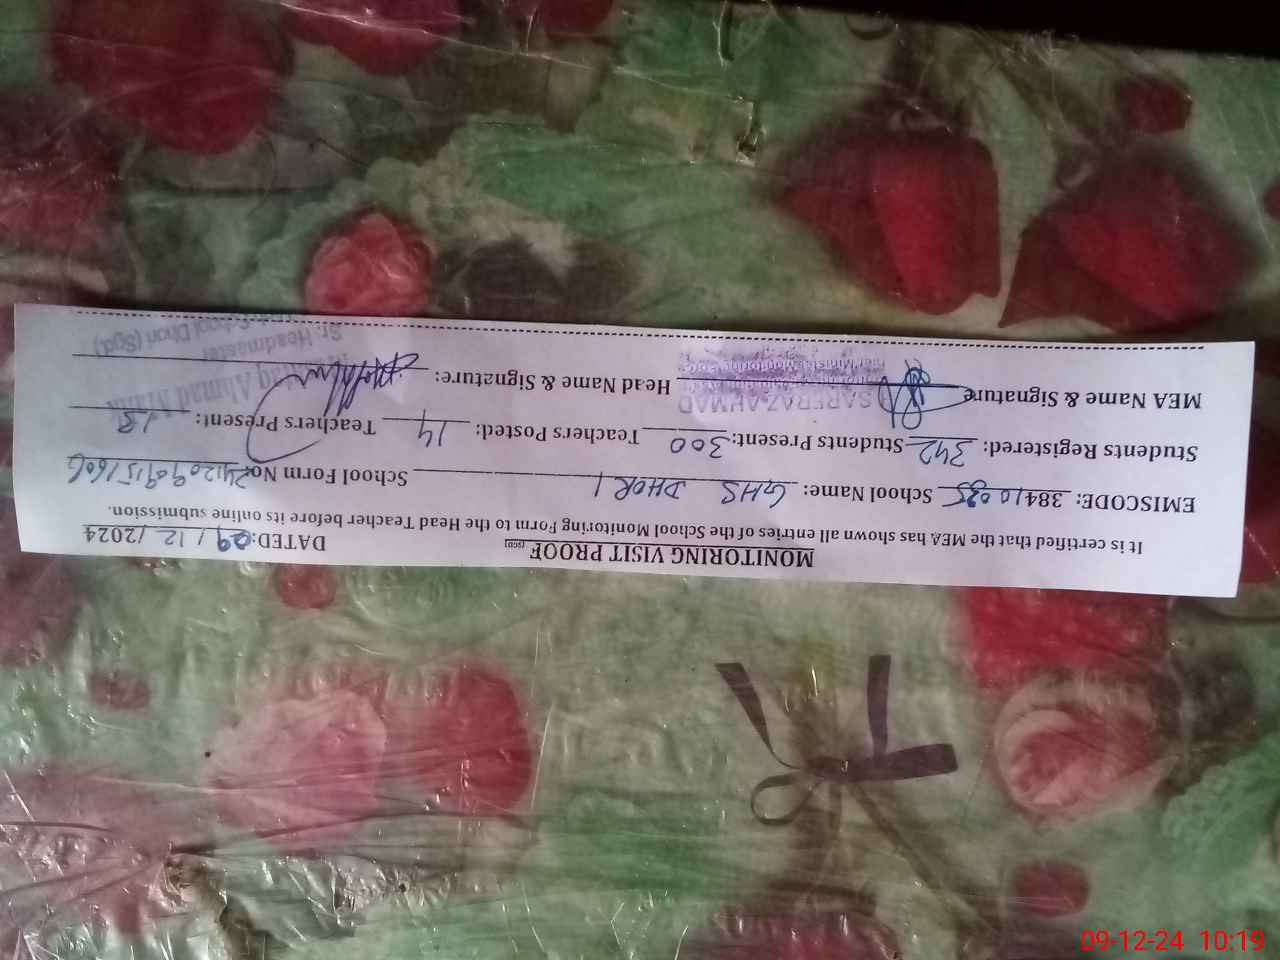 MONITORING VISIT PROOF (SGD) DATED: 09/12/2024
It is certified that the MEA has shown all entries of the School Monitoring Form to the Head Teacher before its online submission.
EMISCODE: 38410035 School Name: GHS DHORI School Form No:
Students Registered: 342 Students Present: 300 Teachers Posted: 14 Teachers Present: 13
MEA Name & Signature SARFRAZ AHMAD Head Name & Signature:
Ahmad Malik
Sr. Headmaster
School Dhori (Sgd)
09-12-24 10:19